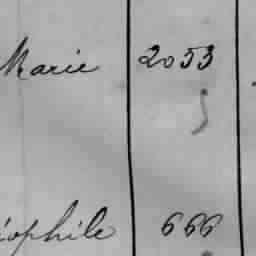 Marie 2053
ophile 666